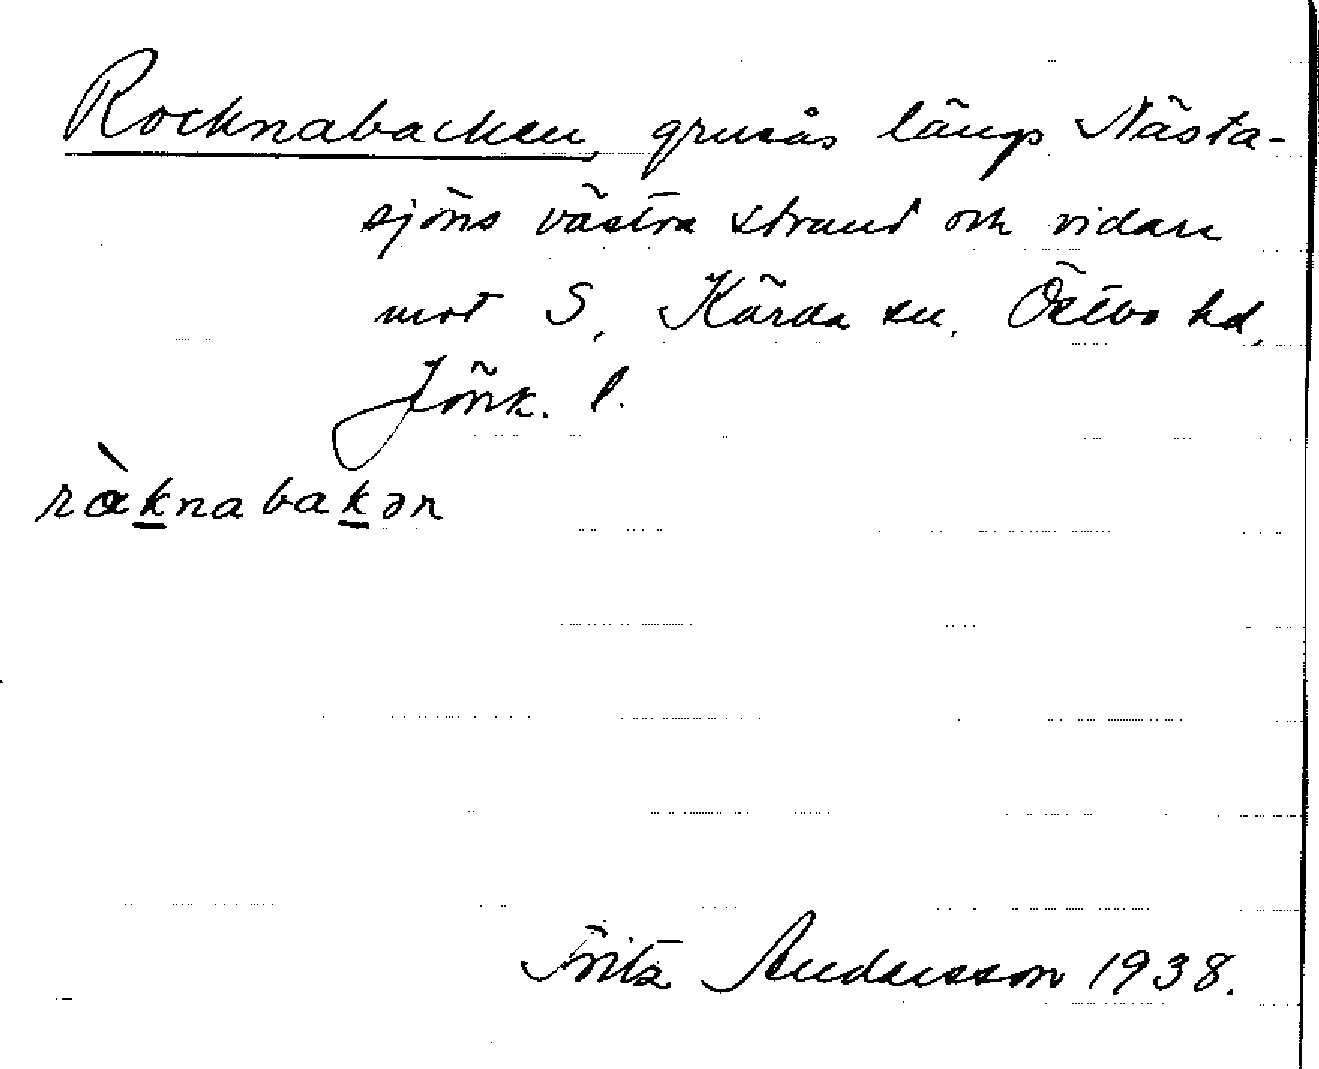 Rocknabacken, grusås längs Nästa-
sjöns västra strand och vidare
mot S, Kärda sn, Östbo hd,
Jönk. l.
ràknabakən
Fritz Andersson 1938.